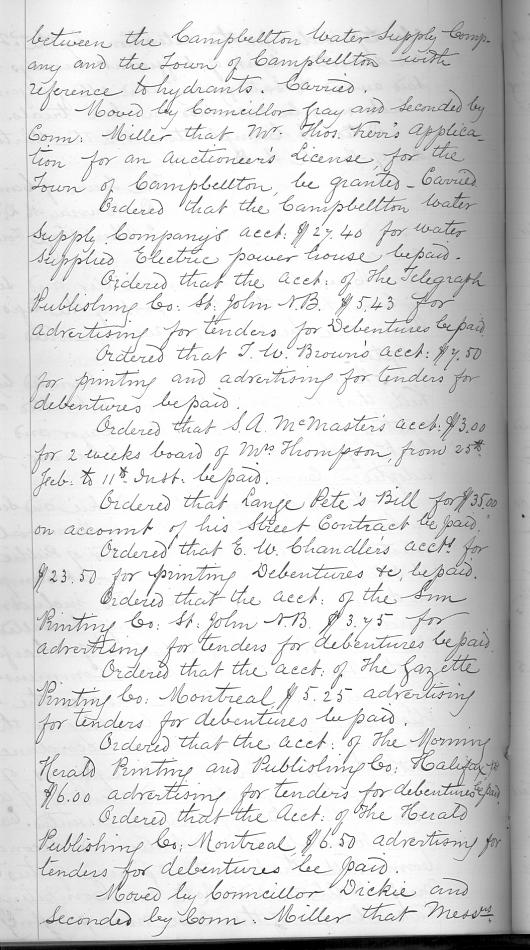 between the Campbellton Water Supply Comp-
any and the Town of Campbellton with
reference to hydrants. Carried.
Moved by Councillor Gray and seconded by
Coun: Miller that Mr. Thos. Kerr's applica-
tion for an Auctioneer's License, for the
Town of Campbellton, be granted - Carried
Ordered that the Campbellton Water
Supply Company's acct: $27.40 for water
supplied Electric power house be paid.
Ordered that the acct: of The Telegraph
Publishing Co: St. John N.B. $5.43 for
advertising for tenders for Debentures be paid.
Ordered that T. W. Brown's acct: $7.50
for printing and advertising for tenders for
debentures be paid.
Ordered that S.A. McMaster's acct: $3.00
for 2 weeks board of Mrs Thompson, from 25th
Feb. to 11th Inst. be paid.
Ordered that Lange Pete's Bill for $35.00
on account of his Street Contract be paid.
Ordered that E. W. Chandler's acct: for
$23.50 for printing Debentures &c, be paid.
Ordered that the acct: of the Sun
Printing Co: St. John N.B. $3.75 for
advertising for tenders for debentures be paid.
Ordered that the acct: of The Gazette
Printing Co: Montreal, $5.25 advertising
for tenders for debentures be paid.
Ordered that the acct: of The Morning
Herald Printing and Publishing Co: Halifax
$6.00 advertising for tenders for debentures be paid.
Ordered that the Acct: of The Herald
Publishing Co; Montreal $6.50 advertising for
tenders for debentures be paid.
Moved by Councillor Dickie and
seconded by Coun. Miller that Messrs.